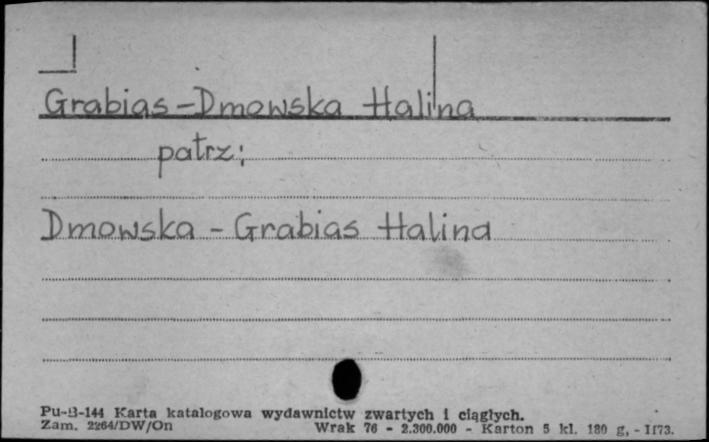 Grabias-Dmowska Halina
patrz:
Dmowska - Grabias Halina
Pu-B-144 Karta katalogowa wydawnictw zwartych i ciągłych.
Zam. 2264/DW/On Wrak 76 - 2.300.000 - Karton 5 kl. 180 g, - 1173.